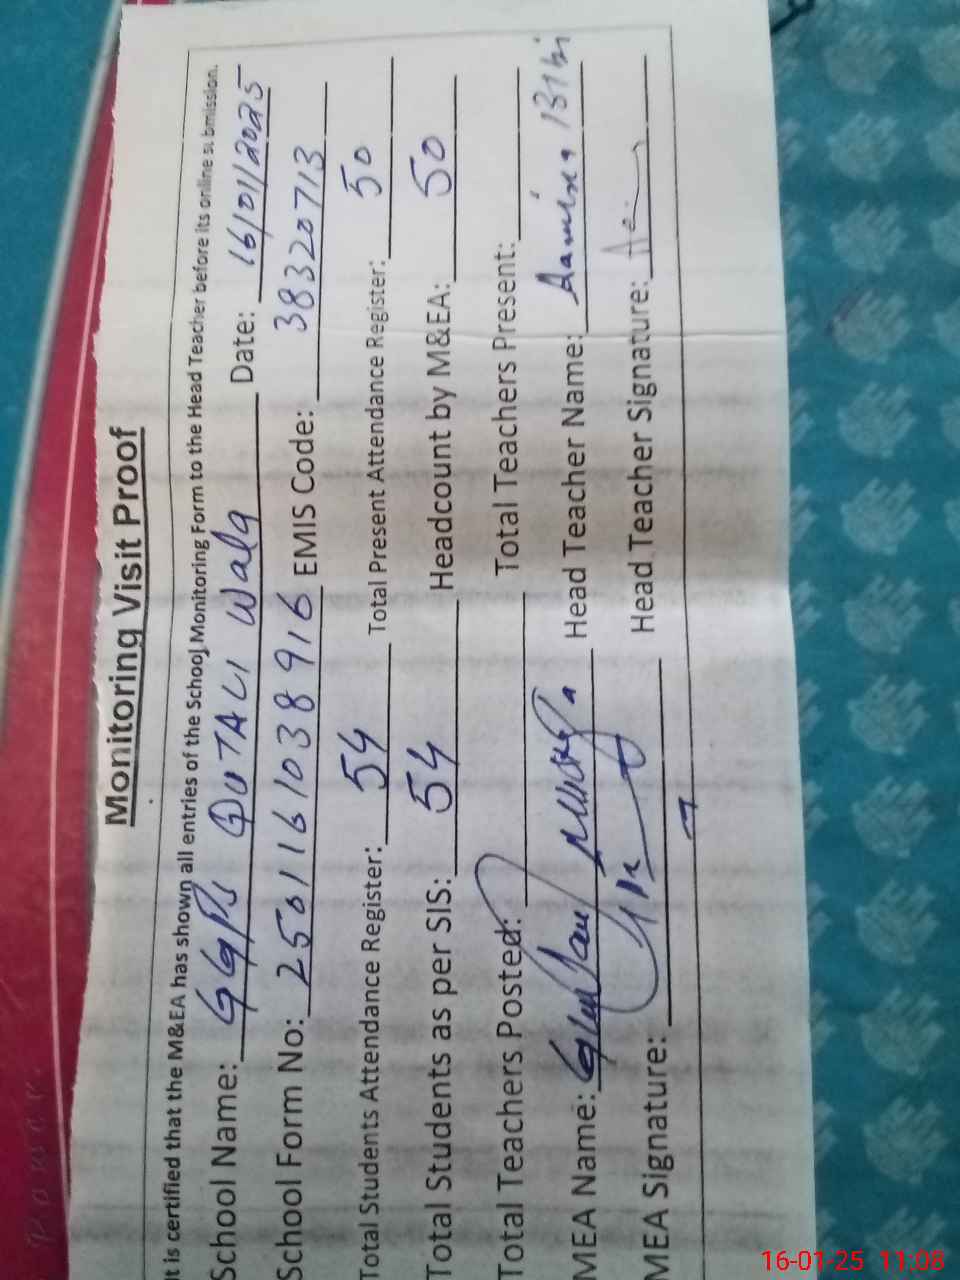 Monitoring Visit Proof
It is certified that the M&EA has shown all entries of the School Monitoring Form to the Head Teacher before its online submission.
School Name: GGPS QUTALI Wala Date: 16/01/2025
School Form No: 2501161038916 EMIS Code: 38320713
Total Students Attendance Register: 54 Total Present Attendance Register: 50
Total Students as per SIS: 54 Headcount by M&EA: 50
Total Teachers Posted: Total Teachers Present:
MEA Name: Head Teacher Name: Aamina Bibi
MEA Signature: Head Teacher Signature:
16-01-25 11:08